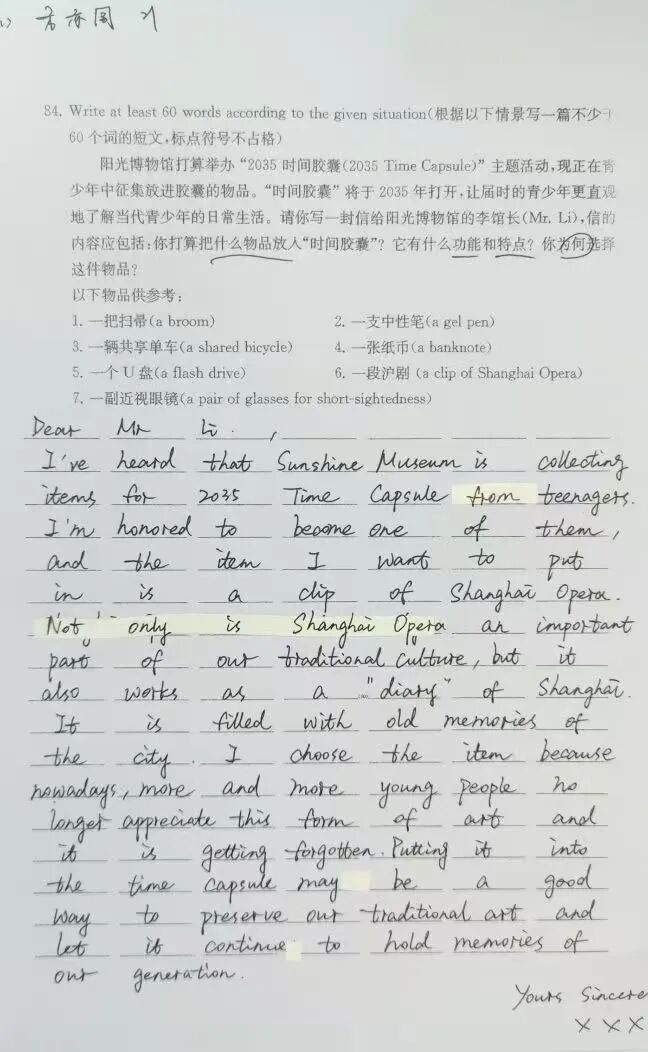 84. Write at least 60 words according to the given situation(根据以下情景写一篇不少于
60个词的短文,标点符号不占格)
阳光博物馆打算举办“2035时间胶囊(2035 Time Capsule)”主题活动,现正在青
少年中征集放进胶囊的物品。“时间胶囊”将于2035年打开,让届时的青少年更直观
地了解当代青少年的日常生活。请你写一封信给阳光博物馆的李馆长(Mr. Li),信的
内容应包括:你打算把什么物品放入“时间胶囊”?它有什么功能和特点?你为何选择
这件物品?
以下物品供参考:
1. 一把扫帚(a broom) 2. 一支中性笔(a gel pen)
3. 一辆共享单车(a shared bicycle) 4. 一张纸币(a banknote)
5. 一个U盘(a flash drive) 6. 一段沪剧 (a clip of Shanghai Opera)
7. 一副近视眼镜(a pair of glasses for short-sightedness)
Dear Mr Li . ,
I've heard that Sunshine Museum is collecting
items for 2035 Time Capsule from teenagers.
I'm honored to become one of them,
and the item I want to put
in is a clip of Shanghai Opera.
Not only is Shanghai Opera an important
part of our traditional culture, but it
also works as a "diary" of Shanghai.
It is filled with old memories of
the city. I choose the item because
nowadays, more and more young people no
longer appreciate this form of art and
it is getting forgotten. Putting it into
the time capsule may be a good
way to preserve our traditional art and
let it continue to hold memories of
our generation.
Yours Sincere
×××